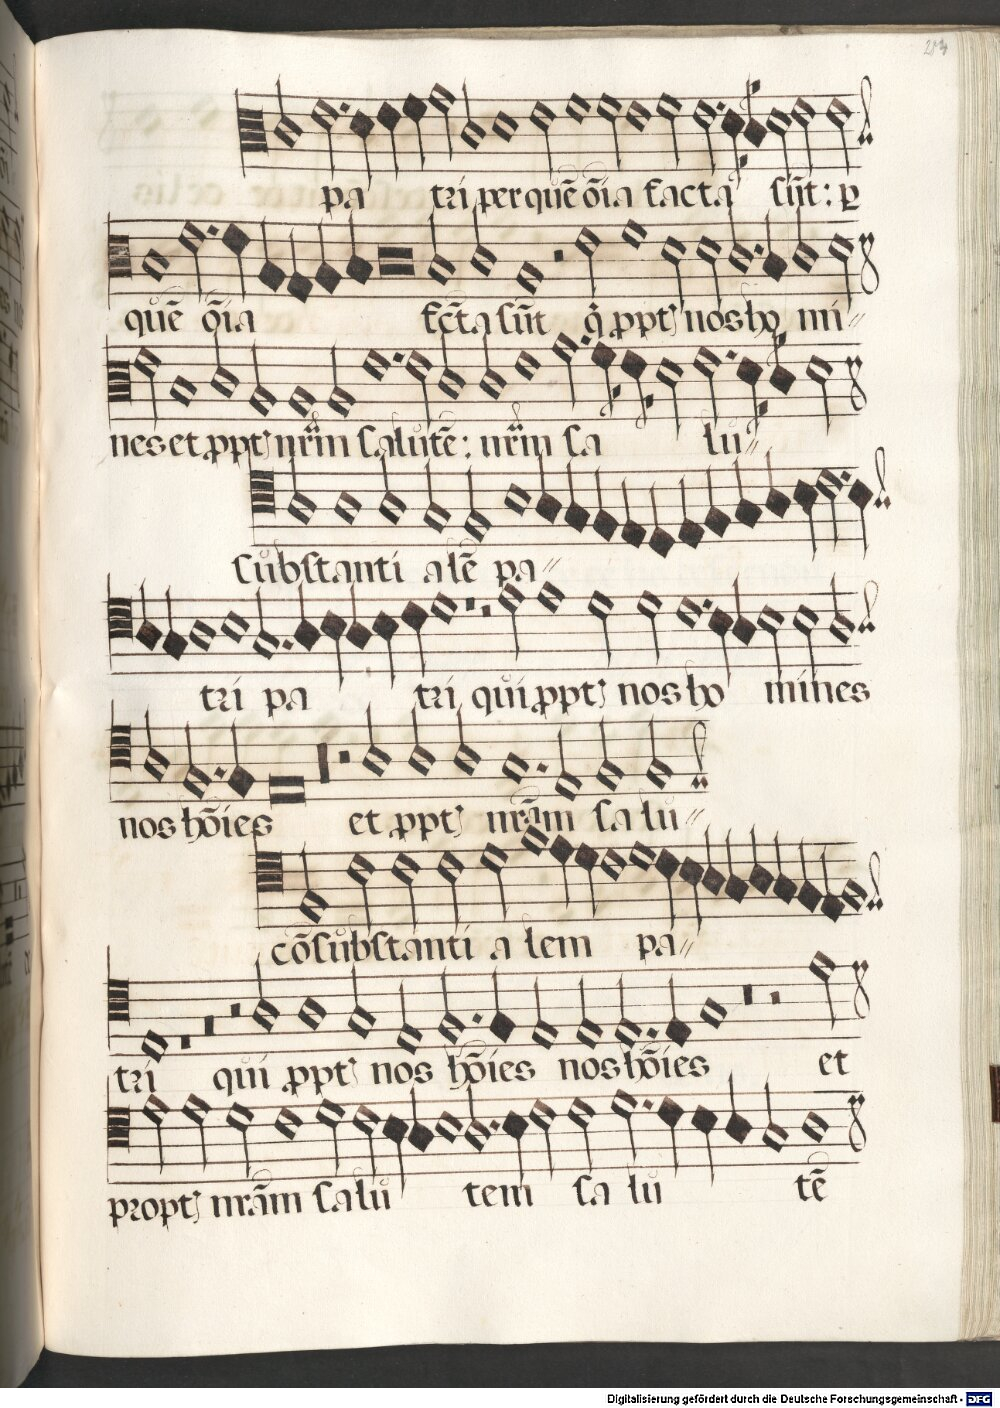 213
pa tri per quē oīa facta sūt: ꝑ
quē oīa fc̄ta sūt q̇ ꝓpt' nos ho mi
nes et ꝓpt' nr̄m salutē: nr̄m sa lu
substanti alē pa
tri pa tri qui ꝓpt' nos ho mines
nos hōies et ꝓpt' nrām salu
cōsubstanti a lem pa
tri qui ꝓpt' nos hōies nos hōies et
propt' nrām salu tem sa lu tē
Digitalisierung gefördert durch die Deutsche Forschungsgemeinschaft - DFG